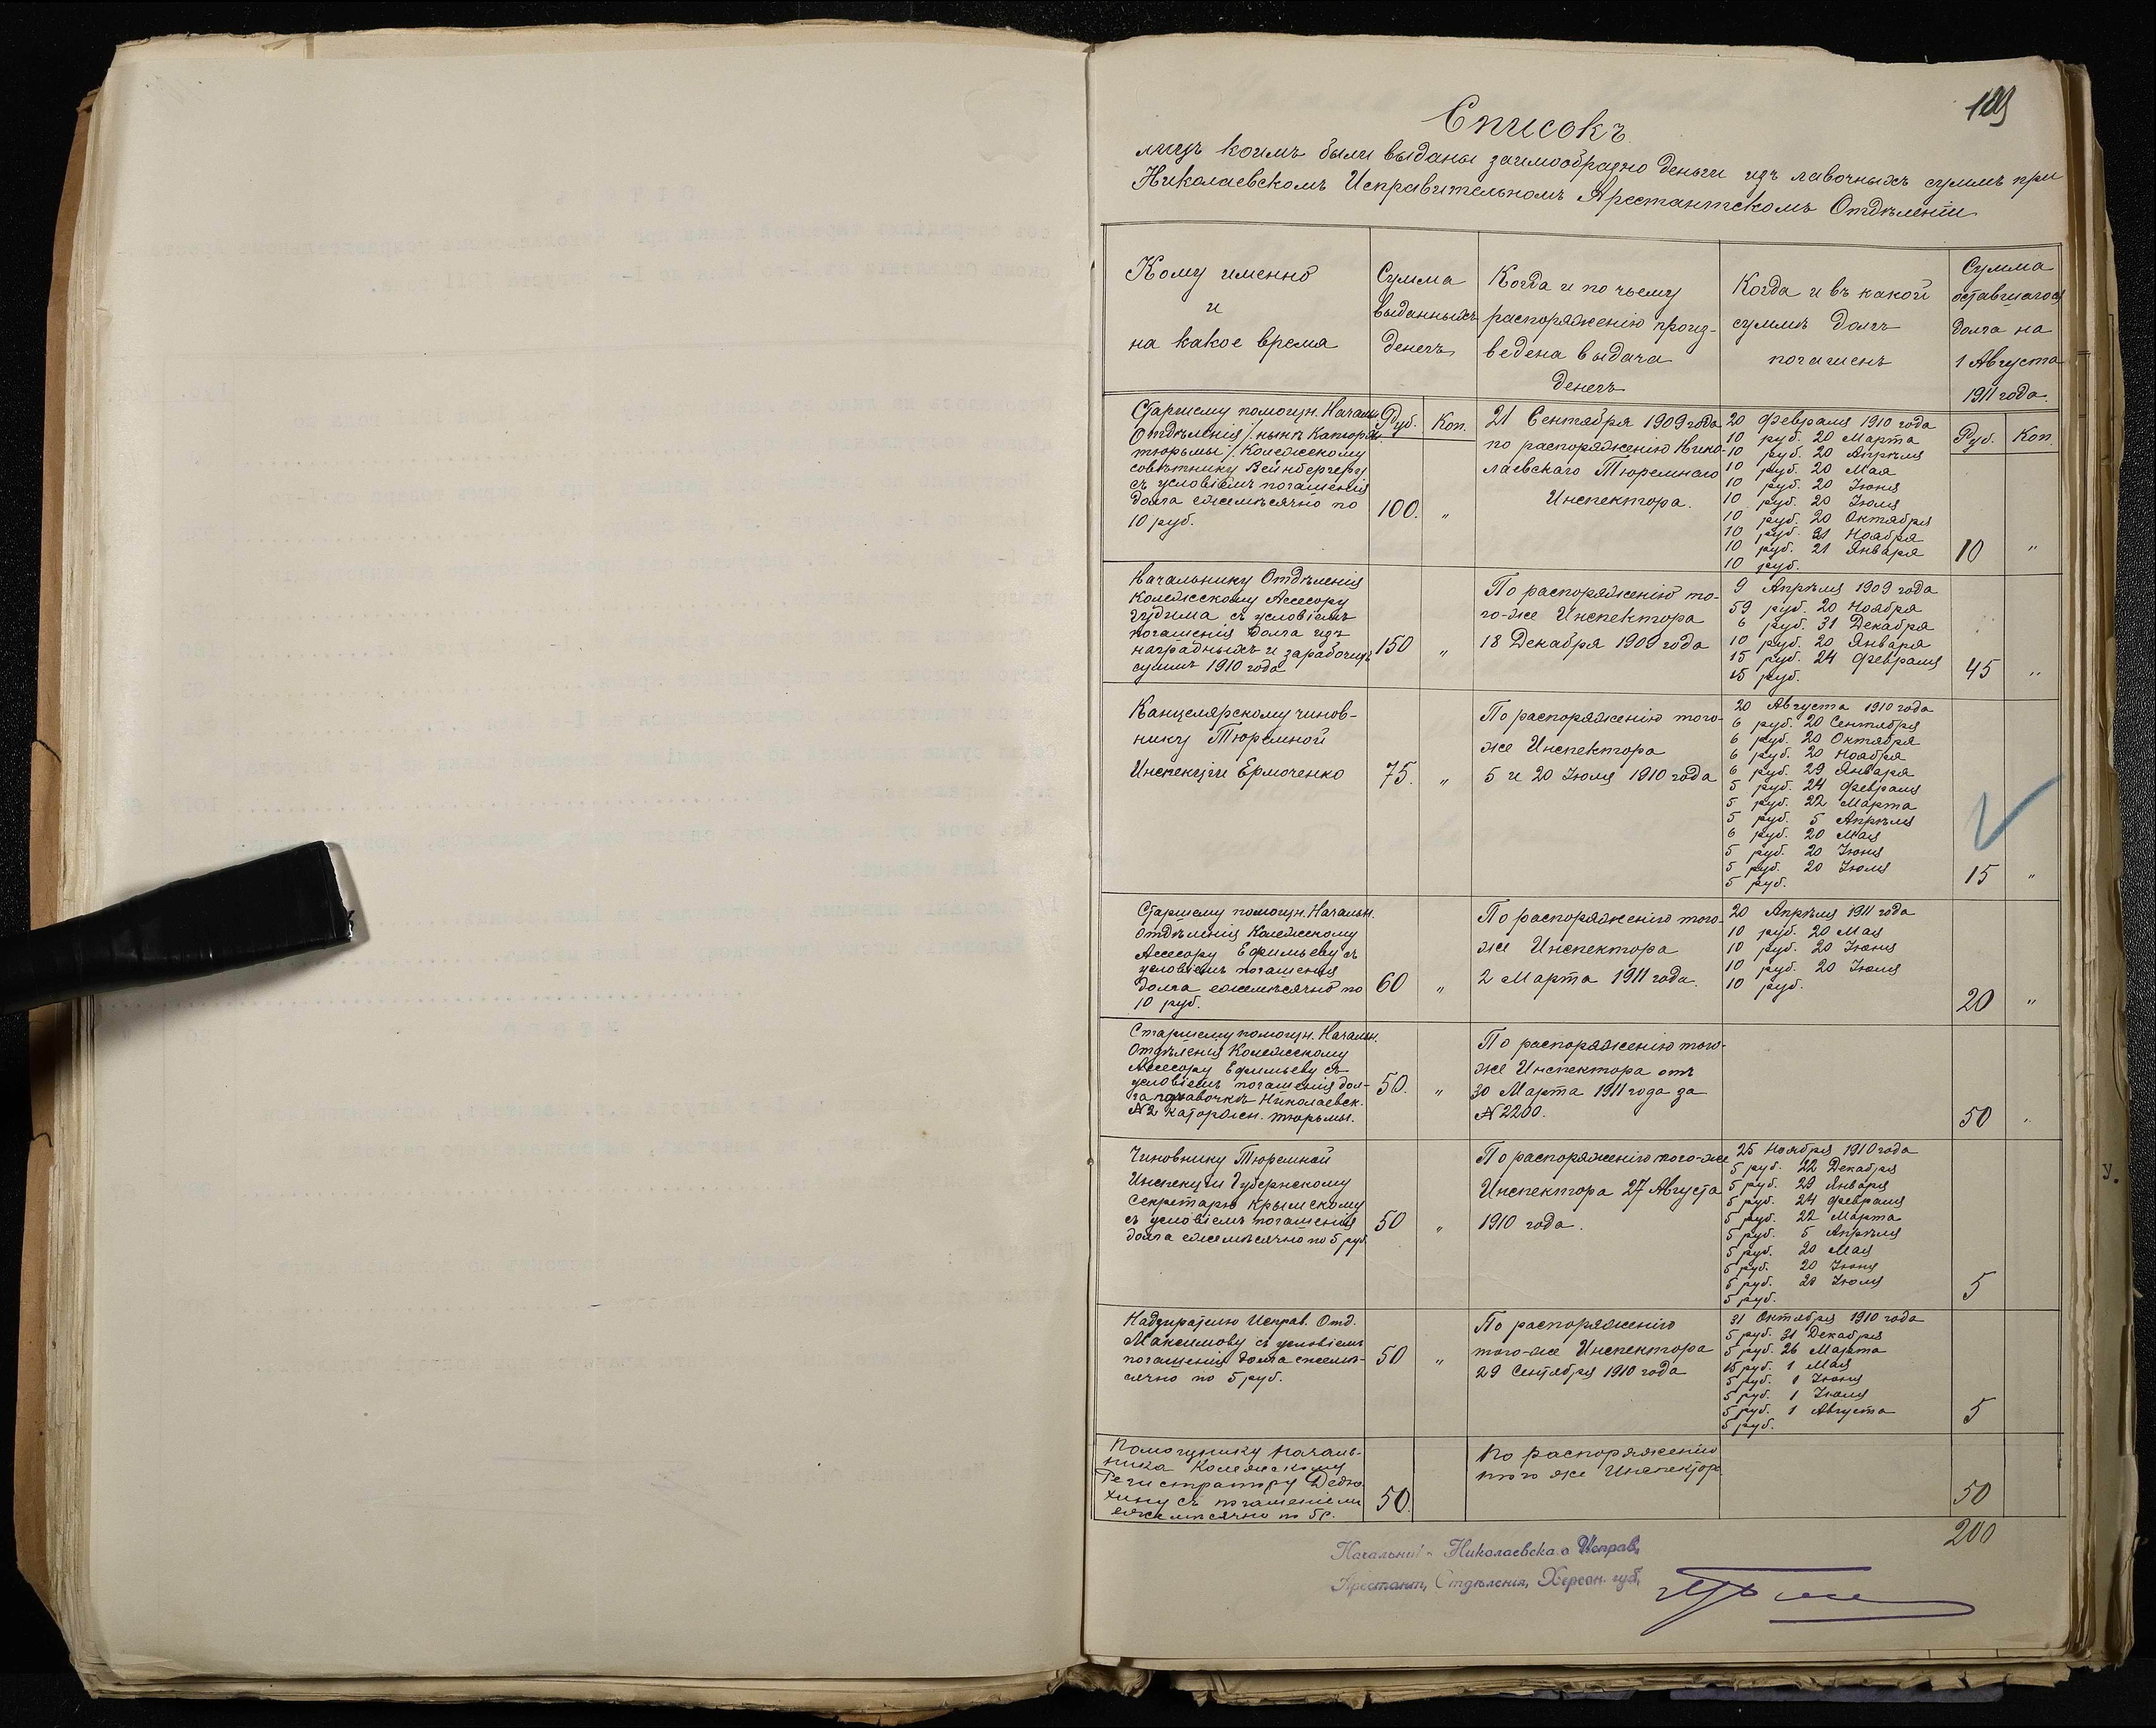 189
Списокъ
лицъ коимъ были выданы заимообразно деньги изъ лавочныхъ суммъ при
Николаевскомъ Исправительномъ Арестантскомъ Отдѣленіи
Кому именно
и
на какое время
Сумма
выданныхъ
денегъ
Когда и по чьему
распоряженію произ-
ведена выдача
денегъ
Когда и въ какой
суммѣ долгъ
погашенъ
Сумма
оставшагося
долга на
1 Августа
1911 года.
Руб. Коп.
Руб. Коп.
Старшему помощн. Начальн.
Отдѣленія /нынѣ Каторж.
тюрьмы/ Коллежскому
совѣтнику Вейнбергеру
съ условіемъ погашенія
долга ежемѣсячно по
10 руб.
100. "
21 Сентября 1909 года
по распоряженію Нико-
лаевскаго Тюремнаго
Инспектора.
20 Февраля 1910 года
10 руб. 20 Марта
10 руб. 20 Апрѣля
10 руб. 20 Мая
10 руб. 20 Іюня
10 руб. 20 Іюля
10 руб. 20 Октября
10 руб. 21 Ноября
10 руб. 21 Января
10 руб.
10 "
Начальнику Отдѣленія
Колежскому Ассесору
Гудима съ условіемъ
погашенія долга изъ
наградныхъ и заработн.
суммъ 1910 года
150 "
По распоряженію то-
го-же Инспектора
18 Декабря 1909 года
9 Апрѣля 1909 года
59 руб. 20 Ноября
6 руб. 31 Декабря
10 руб. 20 Января
15 руб. 24 Февраля
15 руб.
45 "
Канцелярскому чинов-
нику Тюремной
Инспекціи Ермоченко
75. "
По распоряженію того-
же Инспектора
5 и 20 Іюля 1910 года
20 Августа 1910 года
6 руб. 20 Сентября
6 руб. 20 Октября
6 руб. 20 Ноября
6 руб. 29 Января
5 руб. 24 Февраля
5 руб. 22 Марта
5 руб. 5 Апрѣля
6 руб. 20 Мая
5 руб. 20 Іюня
5 руб. 20 Іюля
5 руб.
15 "
Старшему помощн. Начальн.
Отдѣленія Колежскому
Ассесору Ефимьеву съ
условіемъ погашенія
долга ежемѣсячно по
10 руб.
60 "
По распоряженію того-
же Инспектора
2 Марта 1911 года.
20 Апрѣля 1911 года
10 руб. 20 Мая
10 руб. 20 Іюня
10 руб. 20 Іюля
10 руб.
20 "
Старшему помощн. Начальн.
Отдѣленія Колежскому
Ассесору Ефимьеву съ
условіемъ погашенія дол-
га по лавочкѣ Николаевск.
№2 каторжн. тюрьмы.
50. "
По распоряженію того-
же Инспектора отъ
30 Марта 1911 года за
№2200.
50 "
Чиновнику Тюремной
Инспекціи Губернскому
Секретарю Крымскому
съ условіемъ погашенія
долга ежемѣсячно по 5 руб.
50 "
По распоряженію того-же
Инспектора 27 Августа
1910 года.
25 Ноября 1910 года
5 руб. 22 Декабря
5 руб. 29 Января
5 руб. 24 Февраля
5 руб. 22 Марта
5 руб. 5 Апрѣля
5 руб. 20 Мая
5 руб. 20 Іюня
5 руб. 20 Іюля
5 руб.
5
Надзирателю Исправ. Отд.
Максимову съ условіемъ
погашенія долга ежемѣ-
сячно по 5 руб.
50 "
По распоряженію
того-же Инспектора
29 Сентября 1910 года
31 Октября 1910 года
5 руб. 31 Декабря
5 руб. 26 Марта
15 руб. 1 Мая
5 руб. 1 Іюня
5 руб. 1 Іюля
5 руб. 1 Августа
5 руб.
5
Помощнику Началь-
ника Колежскому
Регистратору Дедю-
хину съ погашеніемъ
ежемѣсячно по 5 р.
50.
По распоряженію
того же Инспектора
50
200
Начальникъ Николаевскаго Исправ.
Арестант. Отдѣленія, Херсон. губ.